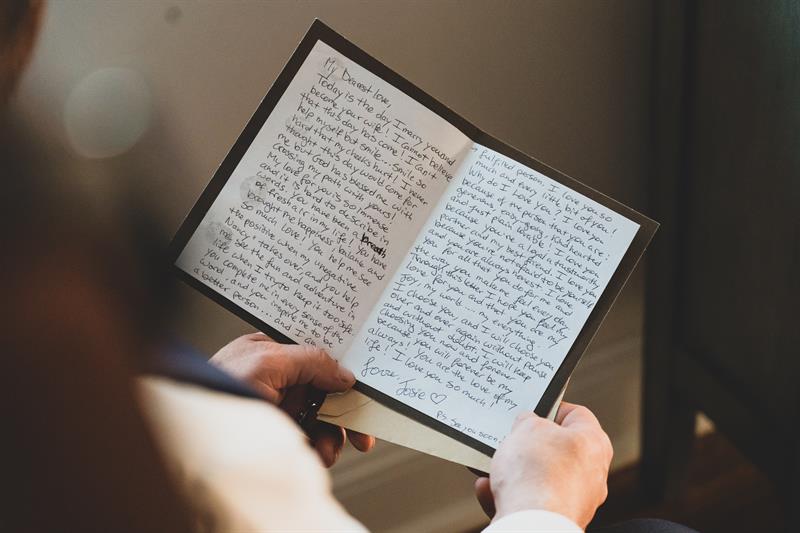 My Dearest love,
Today is the day I marry you and
become your wife! I cannot believe
that this day has come! I can't
help myself but smile... smile so
hard that my cheeks hurt! I never
thought this day would come for
me but God has blessed me with
crossing my path with yours!
My love for you is so immense
and it is hard to describe in
words. You have been a breath
of fresh air in my life! You have
brought me happiness, balance and
so much love! You help me see
the positive when my negative
Nancy takes over, and you help
me see the fun and adventure in
life when I try to keep it too safe.
You complete me in every sense of the
word and you inspire me to be
a better person... and I am
→ fulfilled person. I love you so
much and every little bit of you!
Why do I love you? I love you
because of the person that you are:
generous, easy going, kind hearted
and just plain cute! I love you
because you're a loyal, trustworthy
partner and my best friend, I love
because you're not afraid to be yourself
and you are always honest. I love
you for all that you do for me and
the way you make me feel every day.
Through this letter I hope you feel my
love for you and that you are my
joy, my world... my everything.
I choose you, and I will choose you
over and over again without pause
and without doubt, I will keep
choosing you now and forever
because you will forever be my
always! You are the love of my
life! I love you so much!
Josie ♡
Ps. See you soon